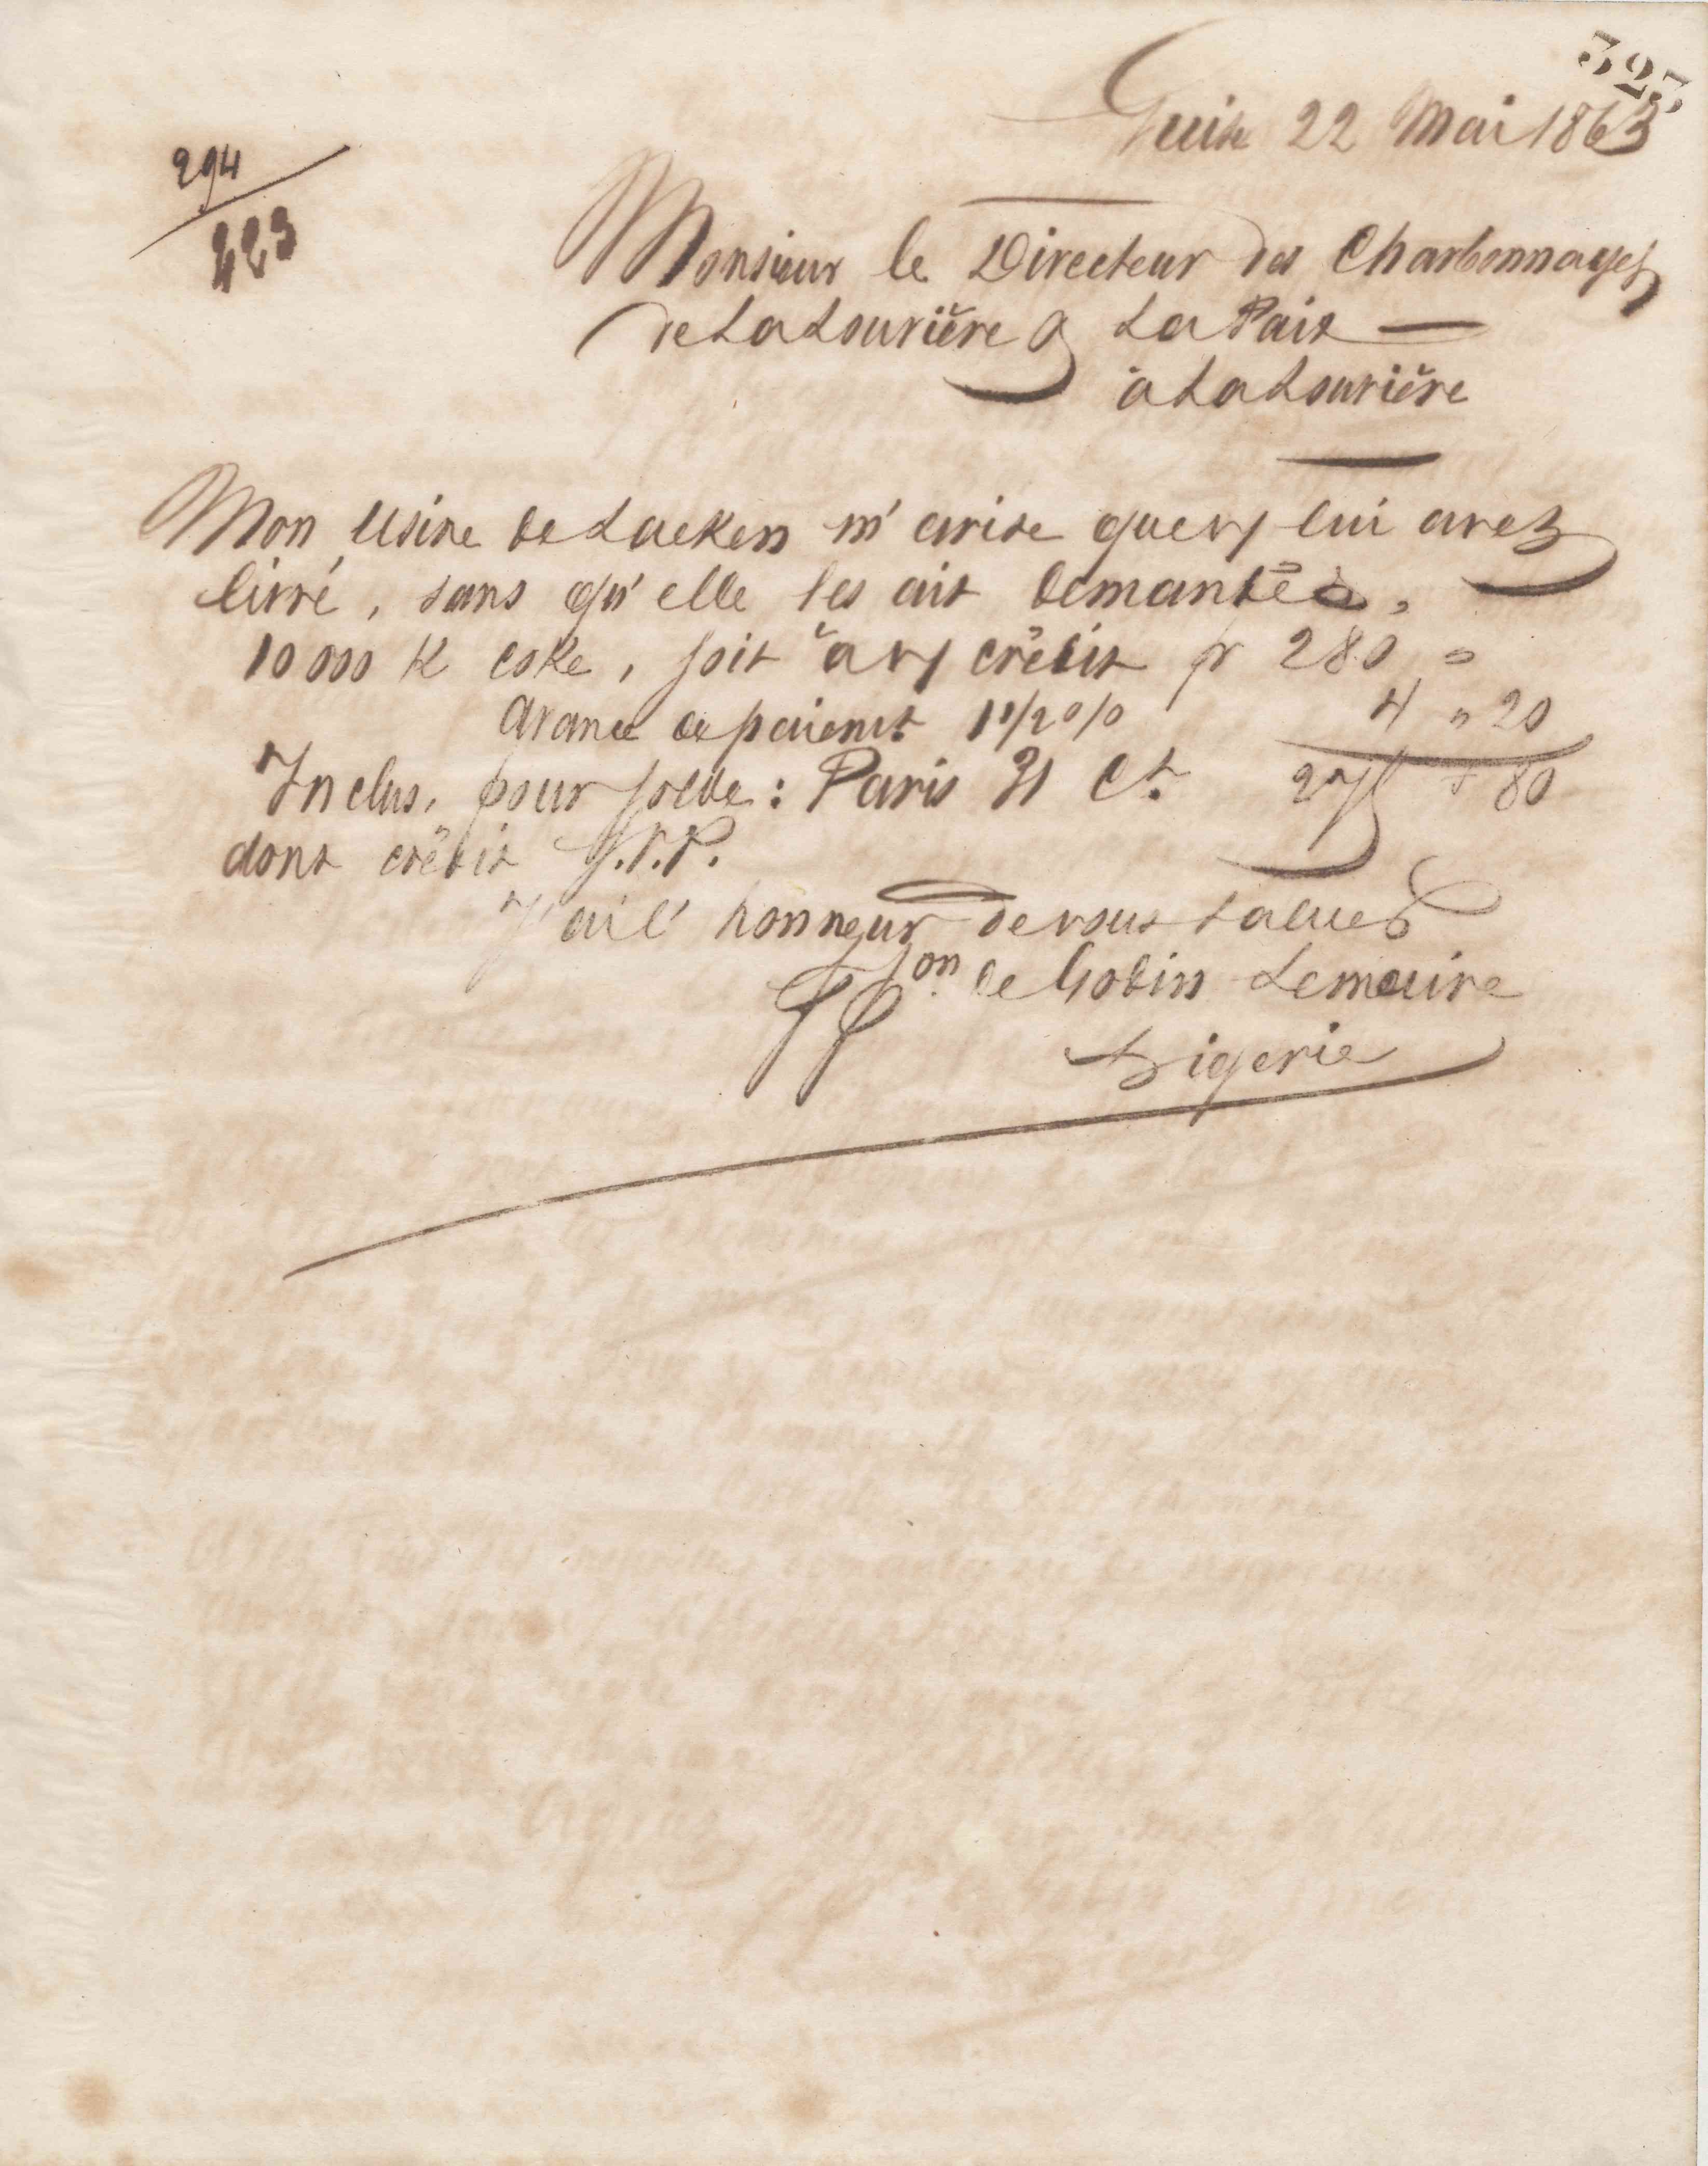 325
Guise 22 Mai 1863
294
223
Monsieur le Directeur des Charbonnages
de La Louvière & La Paix —
à La Louvière
Mon Usine de Laeken m'avise que vs lui avez
livré, sans qu'elle les ait demandés,
10000 K coke, soit à vs crédit fr 280 "
avance de paiemt 1 1/2 0/0 4 " 20
Inclus, pour solde : Paris 31 Ct 275 " 80
dont crédit S.V.P.
J'ai l'honneur de vous saluer
on de Godin Lemaire
Sigerie